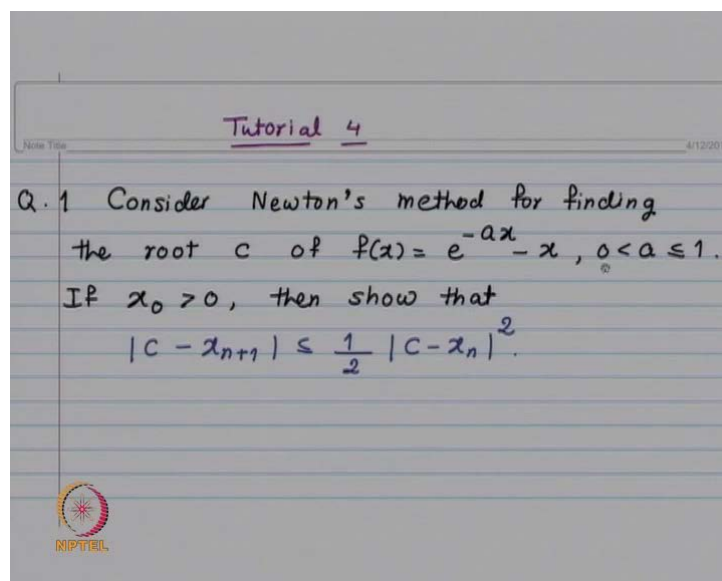 Tutorial 4
Note Title
4/12/201
Q.1 Consider Newton's method for finding
the root c of f(x) = e^{-ax} - x, 0 < a ≤ 1.
If x_0 > 0, then show that
|c - x_{n+1}| ≤ \frac{1}{2} |c - x_n|^2.
NPTEL